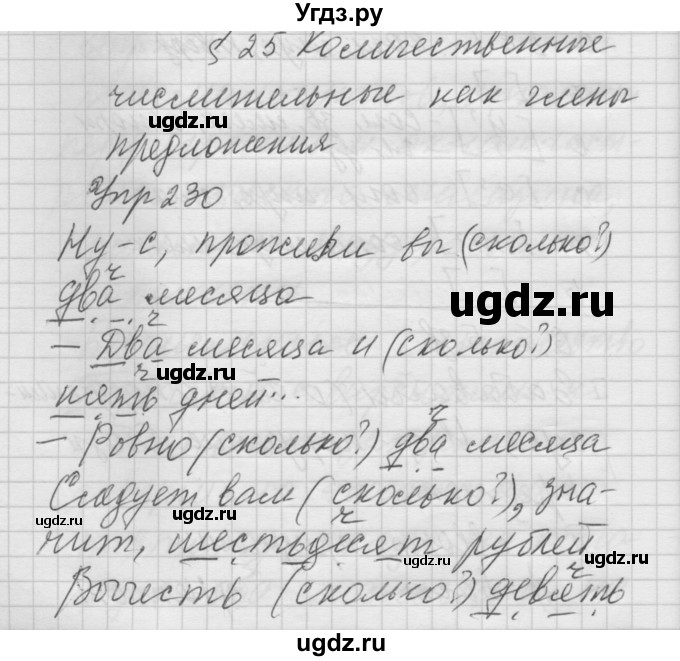 Угдз.ру
§ 25 Количественные
числительные как члены
предложения
Упр 230
Ну-с, прожили вы (сколько?)
ч
два месяца
ч
— Два месяца и (сколько?)
ч
пять дней...
ч
— Ровно (сколько?) два месяца
Следует вам (сколько?), зна-
ч
чит, шестьдесят рублей
ч
Вычесть (сколько?) девять
ugdz.ru
ugdz.ru
ugdz.ru
ugdz.ru
ugdz.ru
ugdz.ru
ugdz.ru
ugdz.ru
ugdz.ru